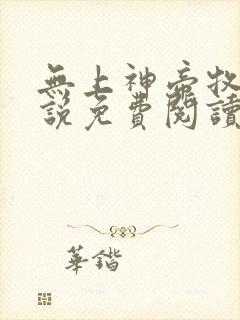 無上神帝牧
說免費閱讀
華鍇